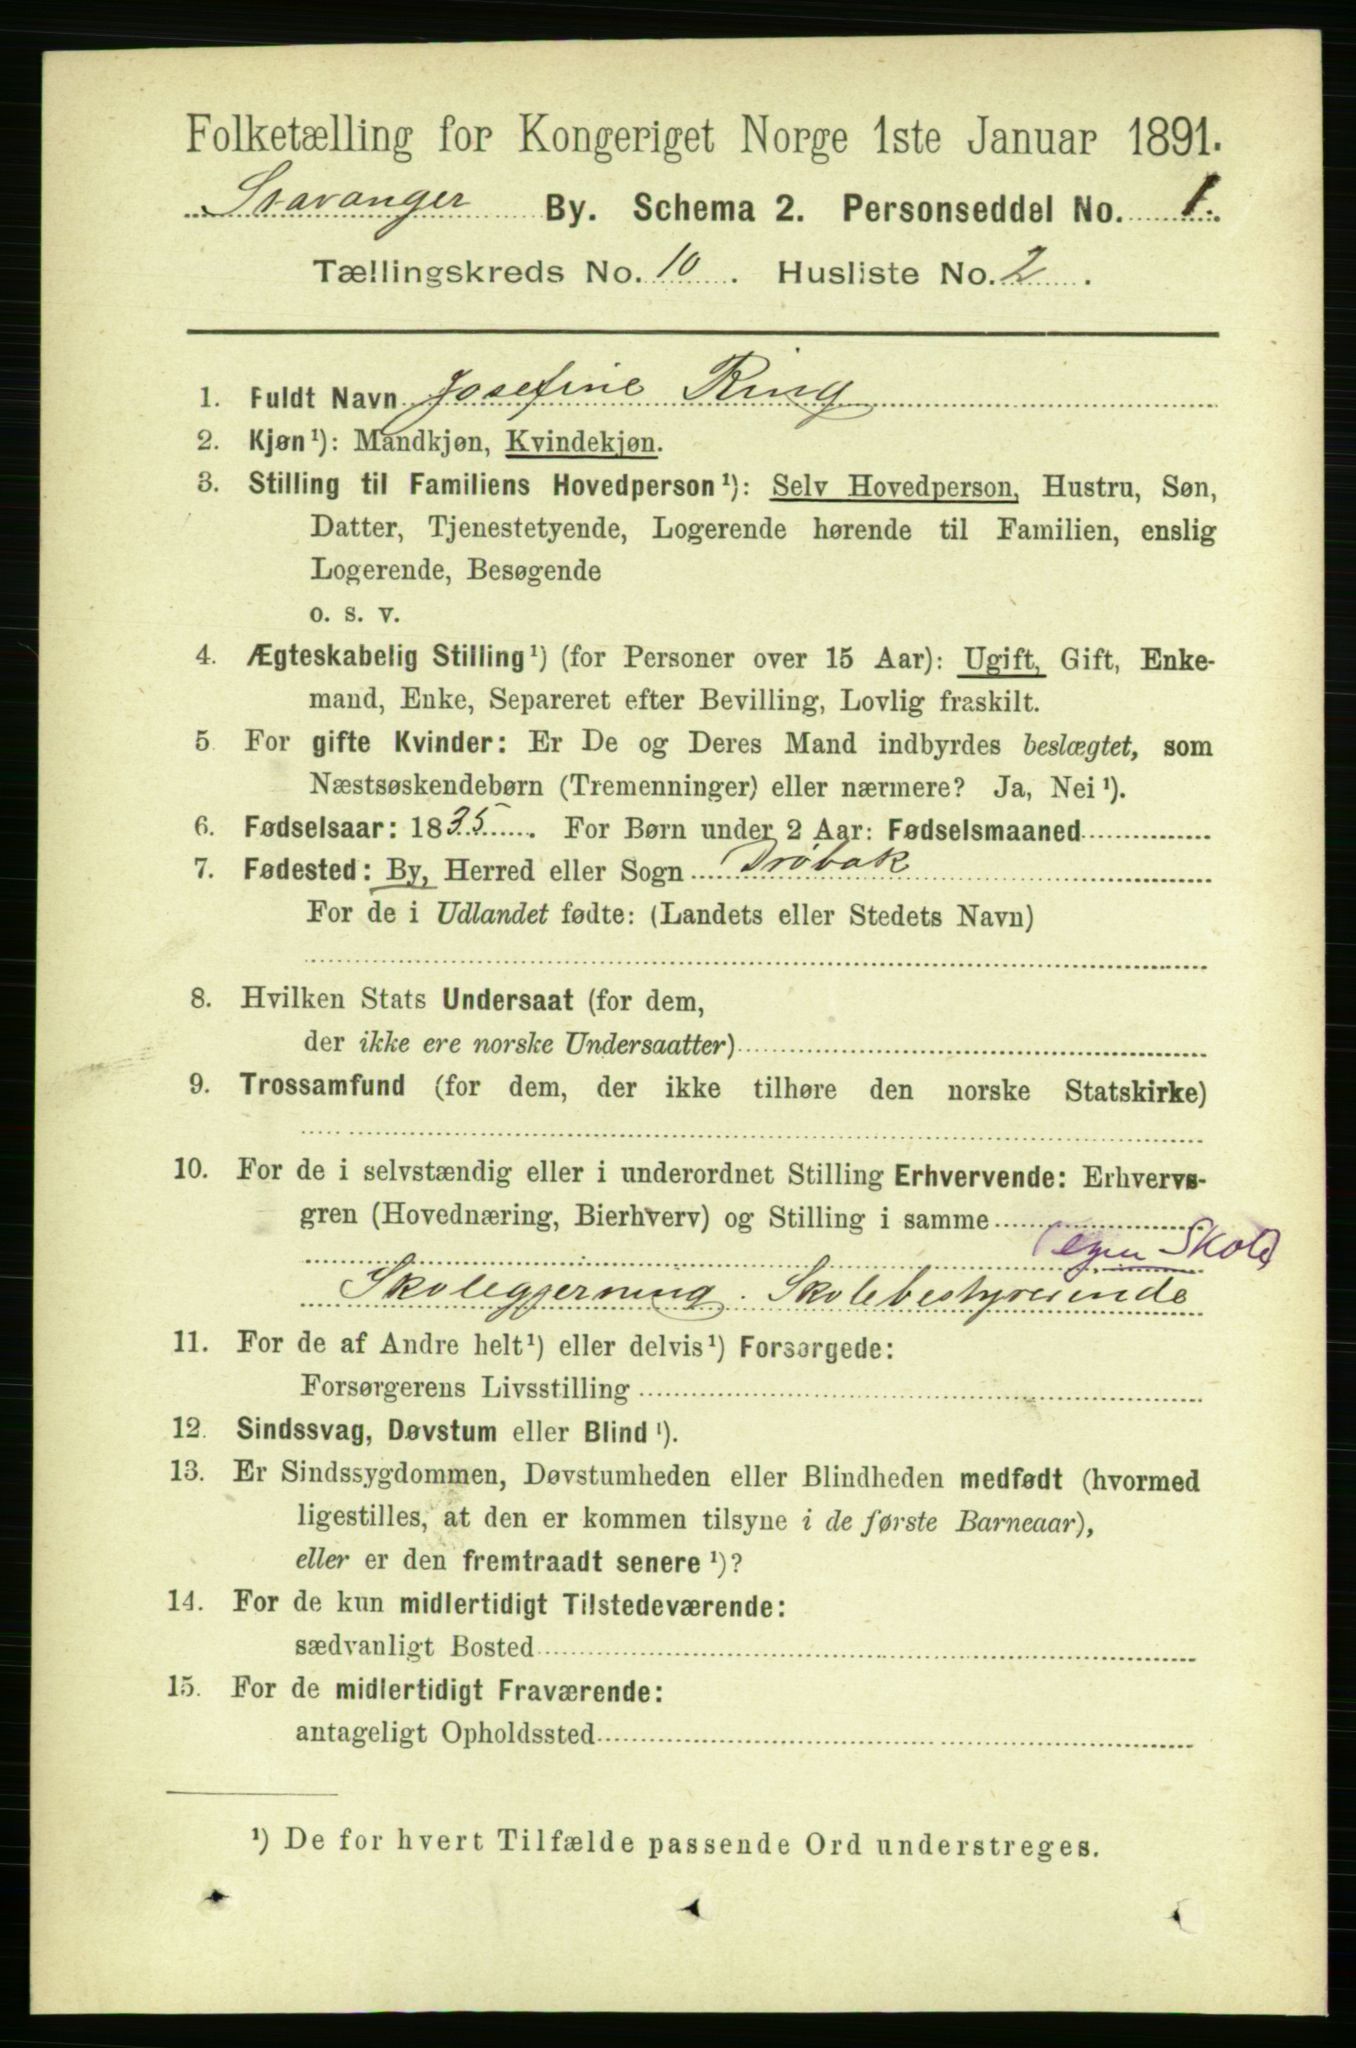 Folketælling for Kongeriget Norge 1ste Januar 1891.
Stavanger By. Schema 2. Personseddel No. 1.
Tællingskreds No. 10. Husliste No. 2.
1. Fuldt Navn Josefine Ring
2. Kjøn¹): Mandkjøn, Kvindekjøn.
3. Stilling til Familiens Hovedperson¹): Selv Hovedperson, Hustru, Søn,
Datter, Tjenestetyende, Logerende hørende til Familien, enslig
Logerende, Besøgende
o. s. v.
4. Ægteskabelig Stilling¹) (for Personer over 15 Aar): Ugift, Gift, Enke-
mand, Enke, Separeret efter Bevilling, Lovlig fraskilt.
5 For gifte Kvinder: Er De og Deres Mand indbyrdes beslægtet, som
Næstsøskendebørn (Tremenninger) eller nærmere? Ja, Nei¹).
6. Fødselsaar: 1835. For Børn under 2 Aar: Fødselsmaaned
7. Fødested: By, Herred eller Sogn Drøbak
For de i Udlandet fødte: (Landets eller Stedets Navn)
8. Hvilken Stats Undersaat (for dem,
der ikke ere norske Undersaatter)
9. Trossamfund (for dem, der ikke tilhøre den norske Statskirke)
10. For de i selvstændig eller i underordnet Stilling Erhvervende: Erhvervs-
gren (Hovednæring, Bierhverv) og Stilling i samme
(egen Skole)
Skolegjerning. Skolebestyrerinde
11. For de af Andre helt¹) eller delvis¹) Forsørgede:
Forsørgerens Livsstilling
12. Sindssvag, Døvstum eller Blind¹).
13. Er Sindssygdommen, Døvstumheden eller Blindheden medfødt (hvormed
ligestilles, at den er kommen tilsyne i de første Barneaar),
eller er den fremtraadt senere¹)?
14. For de kun midlertidigt Tilstedeværende:
sædvanligt Bosted
15. For de midlertidigt Fraværende:
antageligt Opholdssted
¹) De for hvert Tilfælde passende Ord understreges.